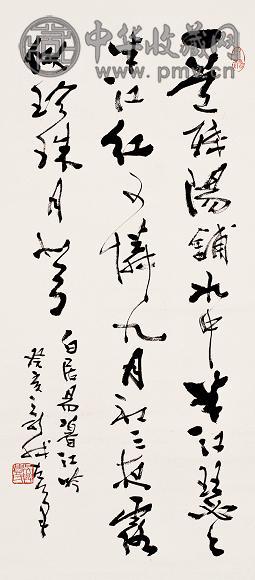 中华收藏网
www.pmx.cn
一道殘陽鋪水中半江瑟々
半江红可憐九月初三夜露
似珍珠月似弓
白居易暮江吟
癸亥之